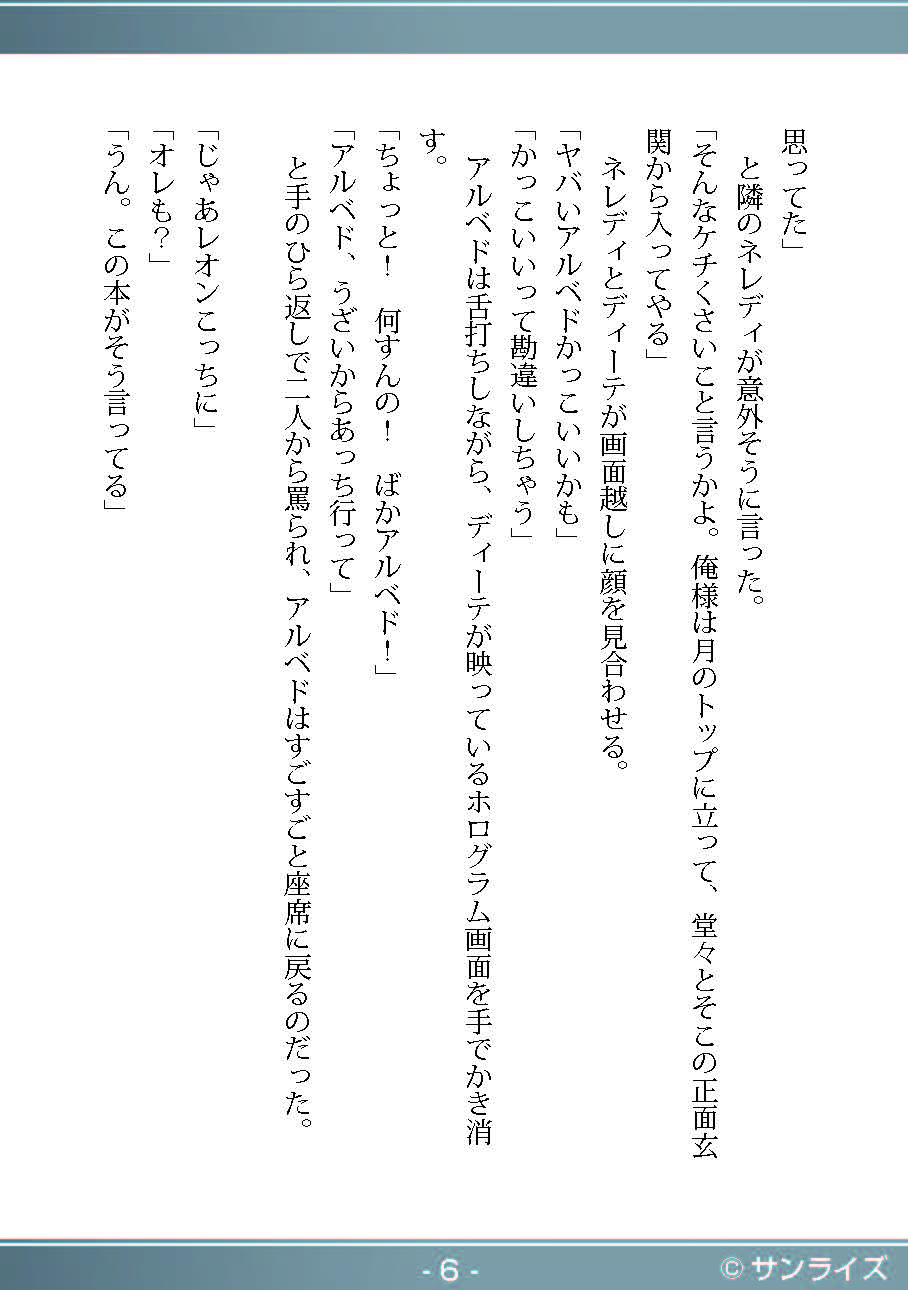 思ってた」
　と隣のネレディが意外そうに言った。
「そんなケチくさいこと言うかよ。俺様は月のトップに立って、堂々とそこの正面玄
関から入ってやる」
　ネレディとディーテが画面越しに顔を見合わせる。
「ヤバいアルベドかっこいいかも」
「かっこいいって勘違いしちゃう」
　アルベドは舌打ちしながら、ディーテが映っているホログラム画面を手でかき消
す。
「ちょっと！　何すんの！　ばかアルベド！」
「アルベド、うざいからあっち行って」
　と手のひら返しで二人から罵られ、アルベドはすごすごと座席に戻るのだった。
「じゃあレオンこっちに」
「オレも？」
「うん。この本がそう言ってる」
- 6 -
© サンライズ